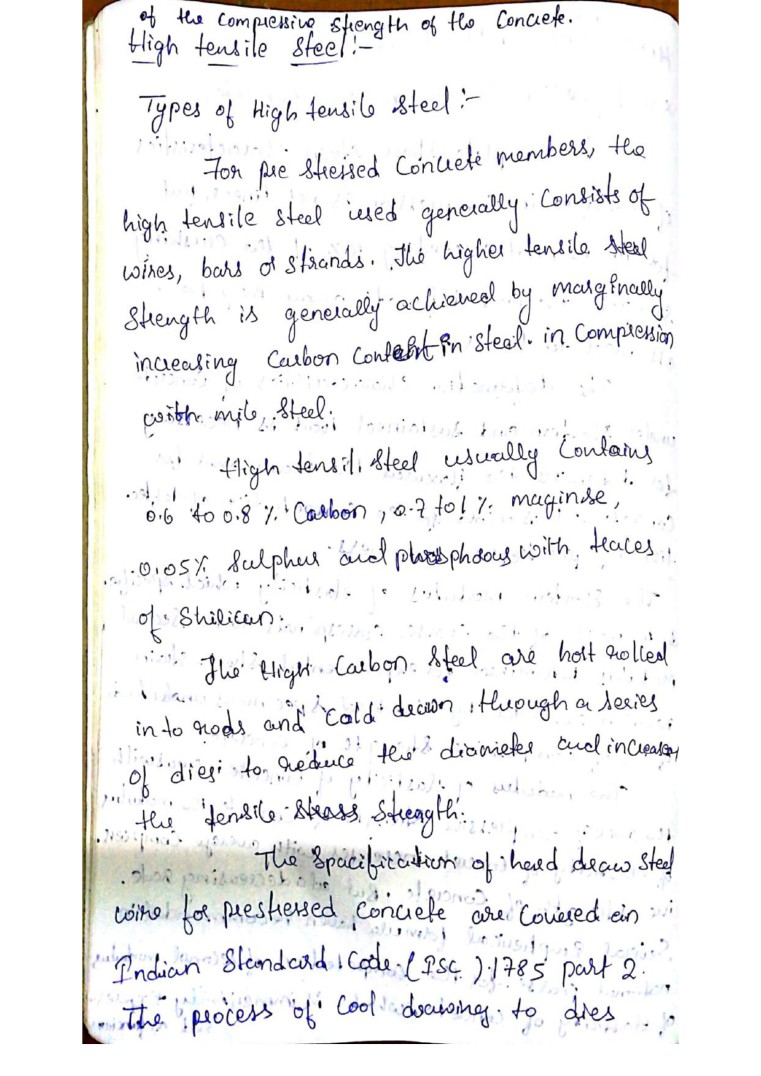 of the compressive strength of the Concrete.
High tensile steel:-
Types of High tensile steel :-
For pre stressed Concrete members, the
high tensile steel used generally Consists of
wires, bars or strands. The higher tensile steel
strength is generally achieved by marginally
increasing Carbon Content in steel. in Compression
with mile steel.
High tensil steel usually Contains
0.6 to 0.8 % Carbon, 0.7 to 1 % maginise,
0.05% Sulpher and phosphrous with traces
of Shilican.
The High Carbon Steel are hott rolled
in to rods and Cold drawn through a series
of dies to reduce the diameter and increases
the tensile strength.
The Spacification of hard draw Steel
wire for prestressed concrete are Covered in
Indian Standard Code (PSC) 1785 part 2.
The process of Cool drawing to dies